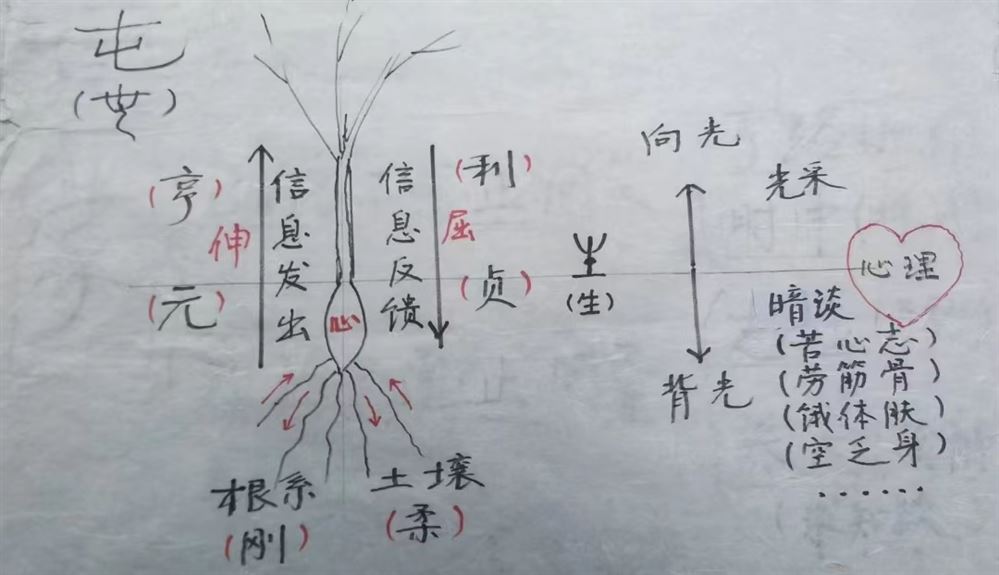 屯
(亨)
伸
(元)
信息发出
心
信息反馈
(利)
屈
(贞)
根系
(刚)
土壤
(柔)
(生)
向光
背光
光采
心理
暗谈
(苦心志)
(劳筋骨)
(饿体肤)
(空乏身)
······